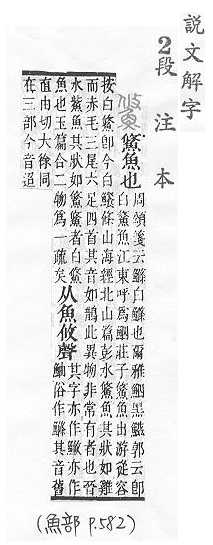 說文解字
2段注本
鯈
鯈魚也
周頌箋云鰷白鰷也爾雅鮂黑鰦郭云卽
白鯈魚江東呼爲鮂莊子鯈魚出游從容
按白鯈卽今白鰷條山海經北山篇彭水鯈魚其狀如雞
而赤毛三尾六足四首其音如鵲此異物非常有者也晉
水鮆魚其狀如鯈鯈者白鯈
魚也玉篇合二物爲一疏矣
从魚攸聲
其字亦作鰷亦作
鮋俗作其音舊
直由切大徐同
在三部今音迢
(魚部 P.582)